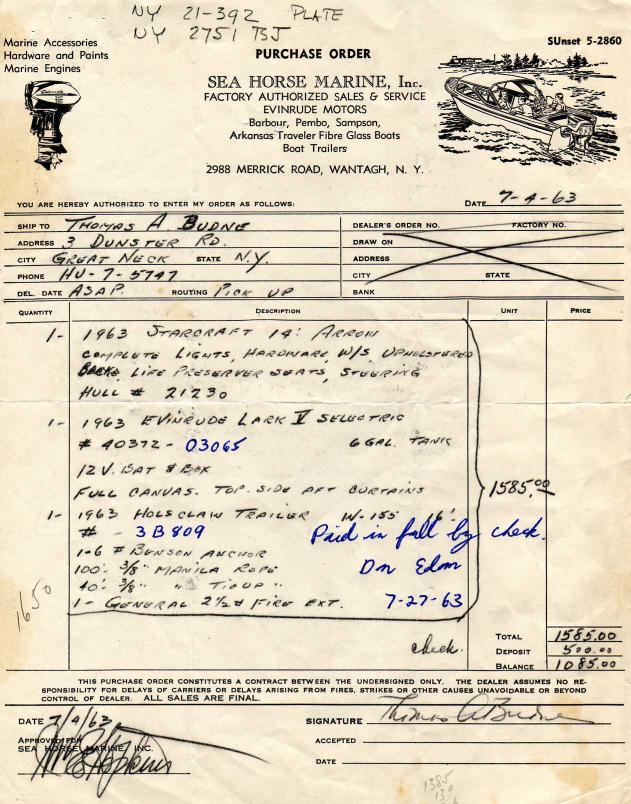 NY 21-392 PLATE
NY 2751 TSJ
Marine Accessories
Hardware and Paints
Marine Engines
SUnset 5-2860
PURCHASE ORDER
SEA HORSE MARINE, Inc.
FACTORY AUTHORIZED SALES & SERVICE
EVINRUDE MOTORS
Barbour, Pembo, Sampson,
Arkansas Traveler Fibre Glass Boats
Boat Trailers
2988 MERRICK ROAD, WANTAGH, N. Y.
YOU ARE HEREBY AUTHORIZED TO ENTER MY ORDER AS FOLLOWS: DATE 7-4-63
SHIP TO THOMAS A BUDNE DEALER'S ORDER NO. FACTORY NO.
ADDRESS 3 DUNSTER RD. DRAW ON
CITY GREAT NECK STATE N.Y. ADDRESS
PHONE HU-7-5747 CITY STATE
DEL. DATE ASAP. ROUTING PICK UP BANK
QUANTITY DESCRIPTION UNIT PRICE
1- 1963 STARCRAFT 14' ARROW
COMPLETE LIGHTS, HARDWARE, W/S, UPHOLSTERED
BACKS, LIFE PRESERVER SEATS, STEERING
HULL # 21230
1- 1963 EVINRUDE LARK V SELECTRIC
# 40372- 03065 6 GAL. TANK
12 V. BAT & BOX
FULL CANVAS. TOP. SIDE AFT CURTAINS 1585.00
1- 1963 HOLSCLAW TRAILER W-155 16'
# - 3B809 Paid in full by check.
1-6 # BENSON ANCHOR
100'- 3/8" MANILA ROPE
40'- 3/8" " TIEUP "
1- GENERAL 2½# FIRE EXT. 7-27-63
1650
check.
TOTAL 1585.00
DEPOSIT 500.00
BALANCE 1085.00
THIS PURCHASE ORDER CONSTITUTES A CONTRACT BETWEEN THE UNDERSIGNED ONLY. THE DEALER ASSUMES NO RE-
SPONSIBILITY FOR DELAYS OF CARRIERS OR DELAYS ARISING FROM FIRES, STRIKES OR OTHER CAUSES UNAVOIDABLE OR BEYOND
CONTROL OF DEALER. ALL SALES ARE FINAL.
DATE 7/4/63 SIGNATURE Thomas A Budne
APPROVED FOR
SEA HORSE MARINE, INC.
ACCEPTED
DATE